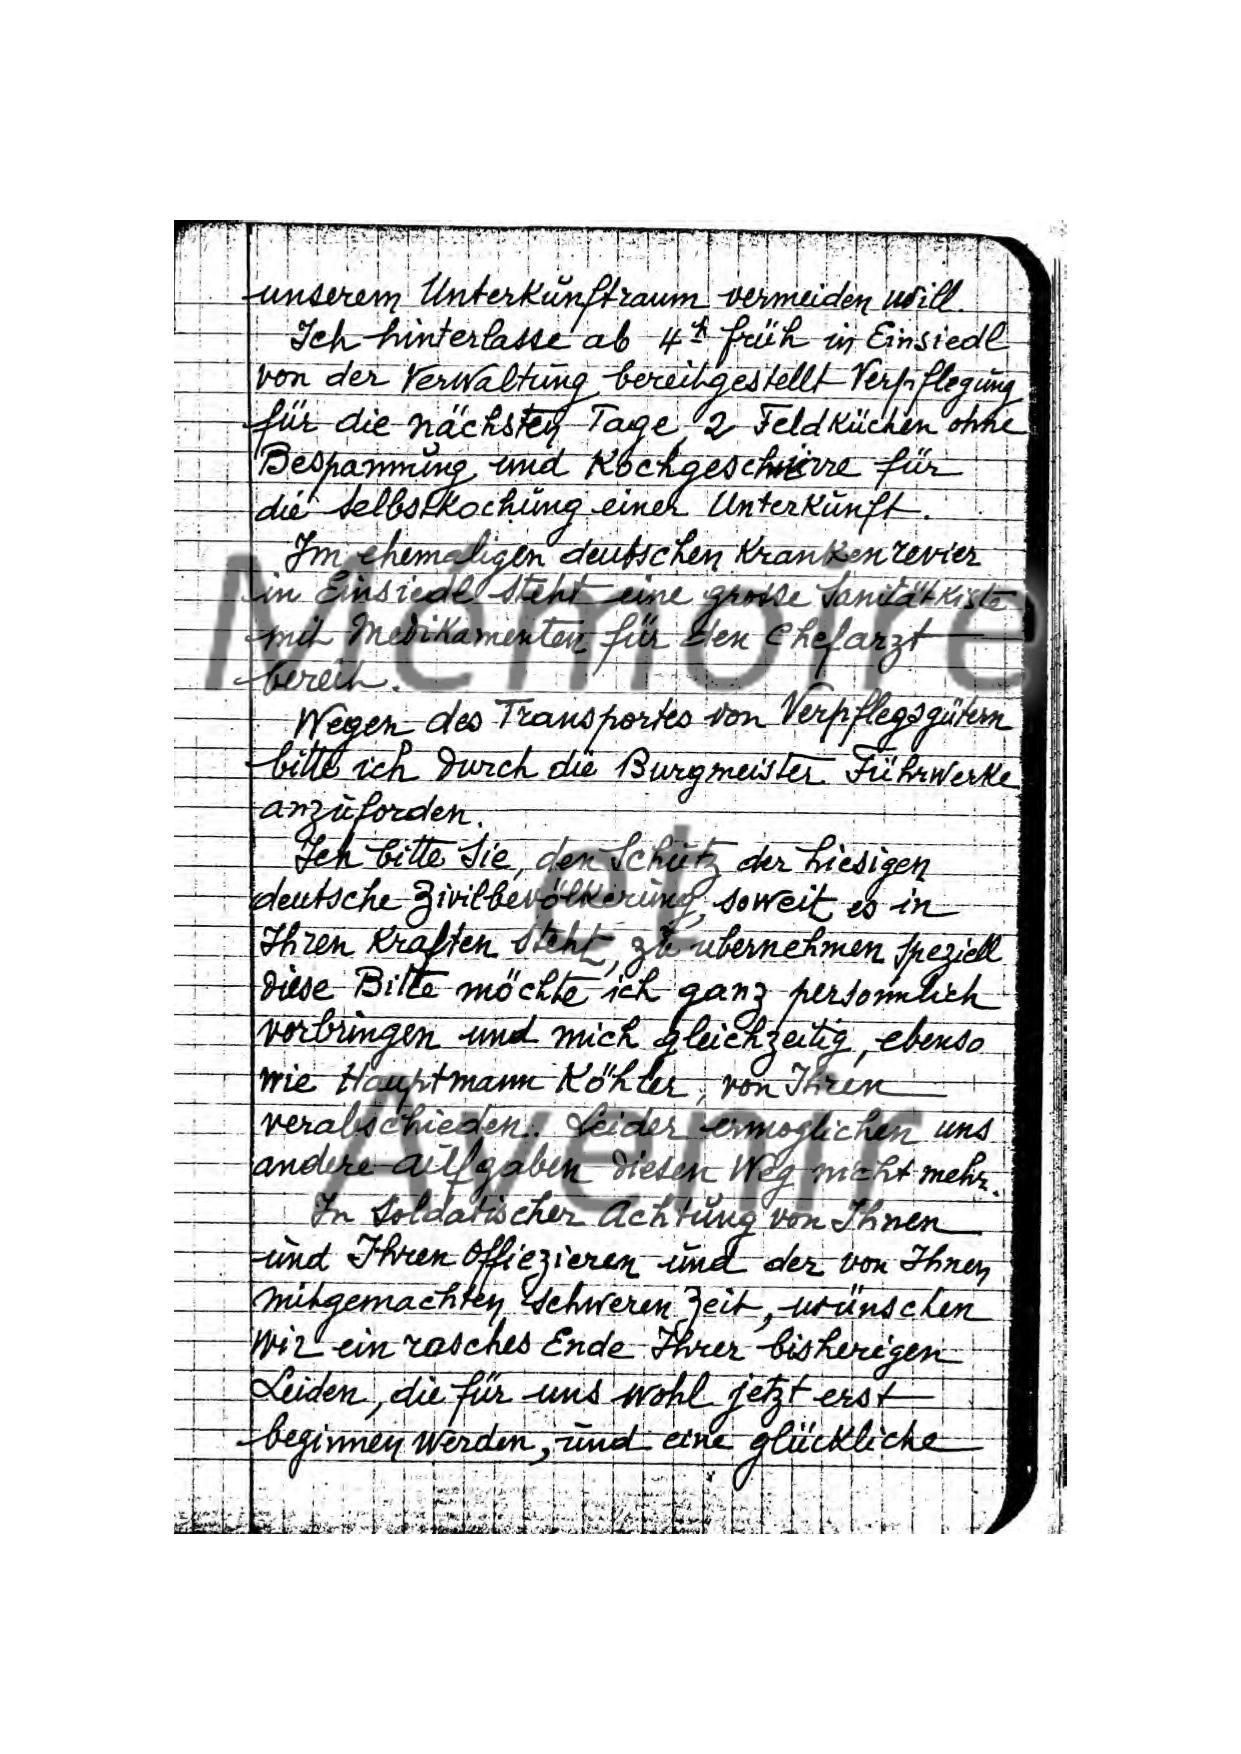 unserem Unterkŭnftraum vermeiden will.
Ich hinterlasse ab 4h früh in Einsiedl
von der Verwaltŭng bereitgestellt Verpflegŭng
für die nächsten Tage, 2 Feldküchen ohne
Bespannŭng und Kochgeschirre für
die Selbstkochŭng einer Unterkŭnft.
Im ehemaligen deutschen Krankenrevier
in Einsiedl steht eine grosse Sanitätkiste
mit Medikamenten für den Chefarzt
bereit.
Wegen des Transportes von Verpflegsgütern
bitte ich durch die Burgmeister Führwerke
anzŭforden.
Ich bitte Sie, den Schŭtz der hiesigen
deutsche Zivilbevölkerŭng, soweit es in
Ihren Kraften steht, zŭ ubernehmen speziell
diese Bitte möchte ich ganz personnlich
vorbringen und mich gleichzeitig, ebenso
wie Hauptmann Köhler, von Ihren
verabschieden. Leider ermoglichen uns
andere Aŭfgaben diesen Weg nicht mehr.
In Soldatischer Achtŭng von Ihnen
ŭnd Ihren Offiezieren ŭnd der von Ihnen
mitgemachten schweren Zeit, wünschen
wir ein rasches Ende Ihrer bisherigen
Leiden, die für uns wohl jetzt erst
beginnen werden, ŭnd eine glückliche
Mémoire
et
Avenir